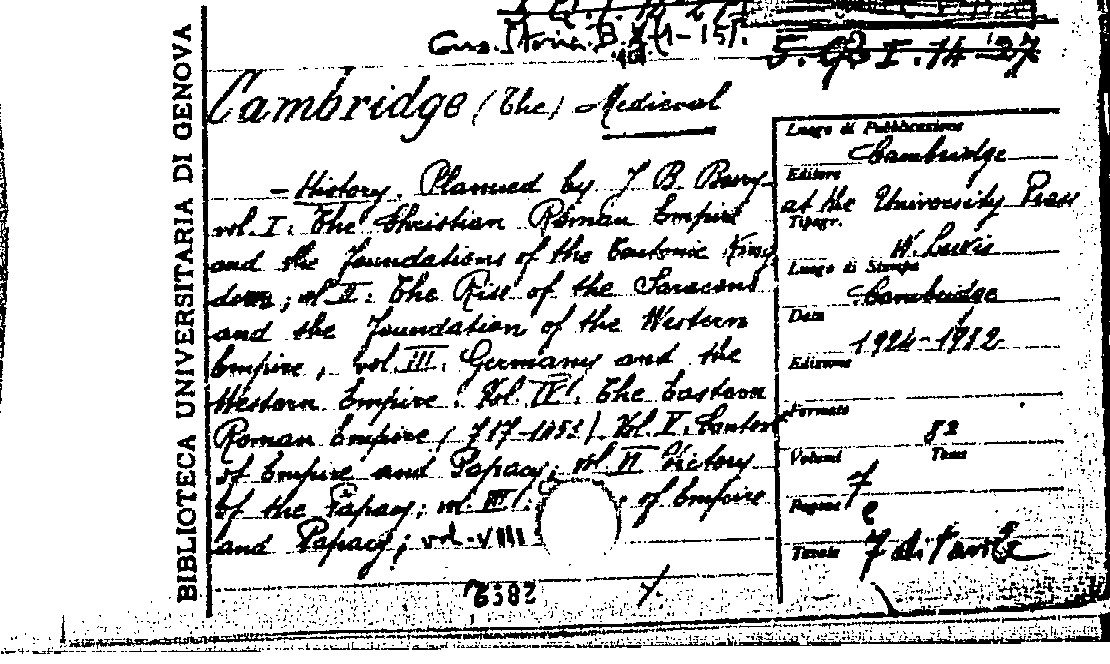 BIBLIOTECA UNIVERSITARIA DI GENOVA
5. I. 14-27
Cambridge (The) Medieval
- History. Planned by J B Bury
vol. I. The Christian Roman Empire
and the Foundations of the Teutonic King
doms; vol II. The Rise of the Saracens
and the Foundation of the Western
Empire, vol. III. Germany and the
Western Empire. Vol. IV. The Eastern
Roman Empire (717-1453). Vol. V.
of Empire and Papacy; vol VI Victory
of the Papacy; vol. VII: of Empire
and Papacy; vol. VIII
6382
Luogo di Pubblicazione
Cambridge
Editore
at the University Press
Tipogr.
W. Lewis
Luogo di Stampa
Cambridge
Data
1924-1932
Edizione
Formato
8º
Volumi Tomi
7
Pagine
e
Tavole 7 di tavole